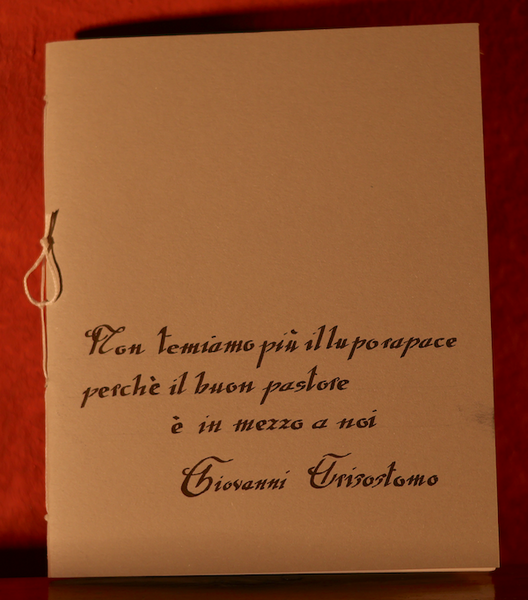 Non temiamo più il lupo rapace
perchè il buon pastore
è in mezzo a noi
Giovanni Crisostomo